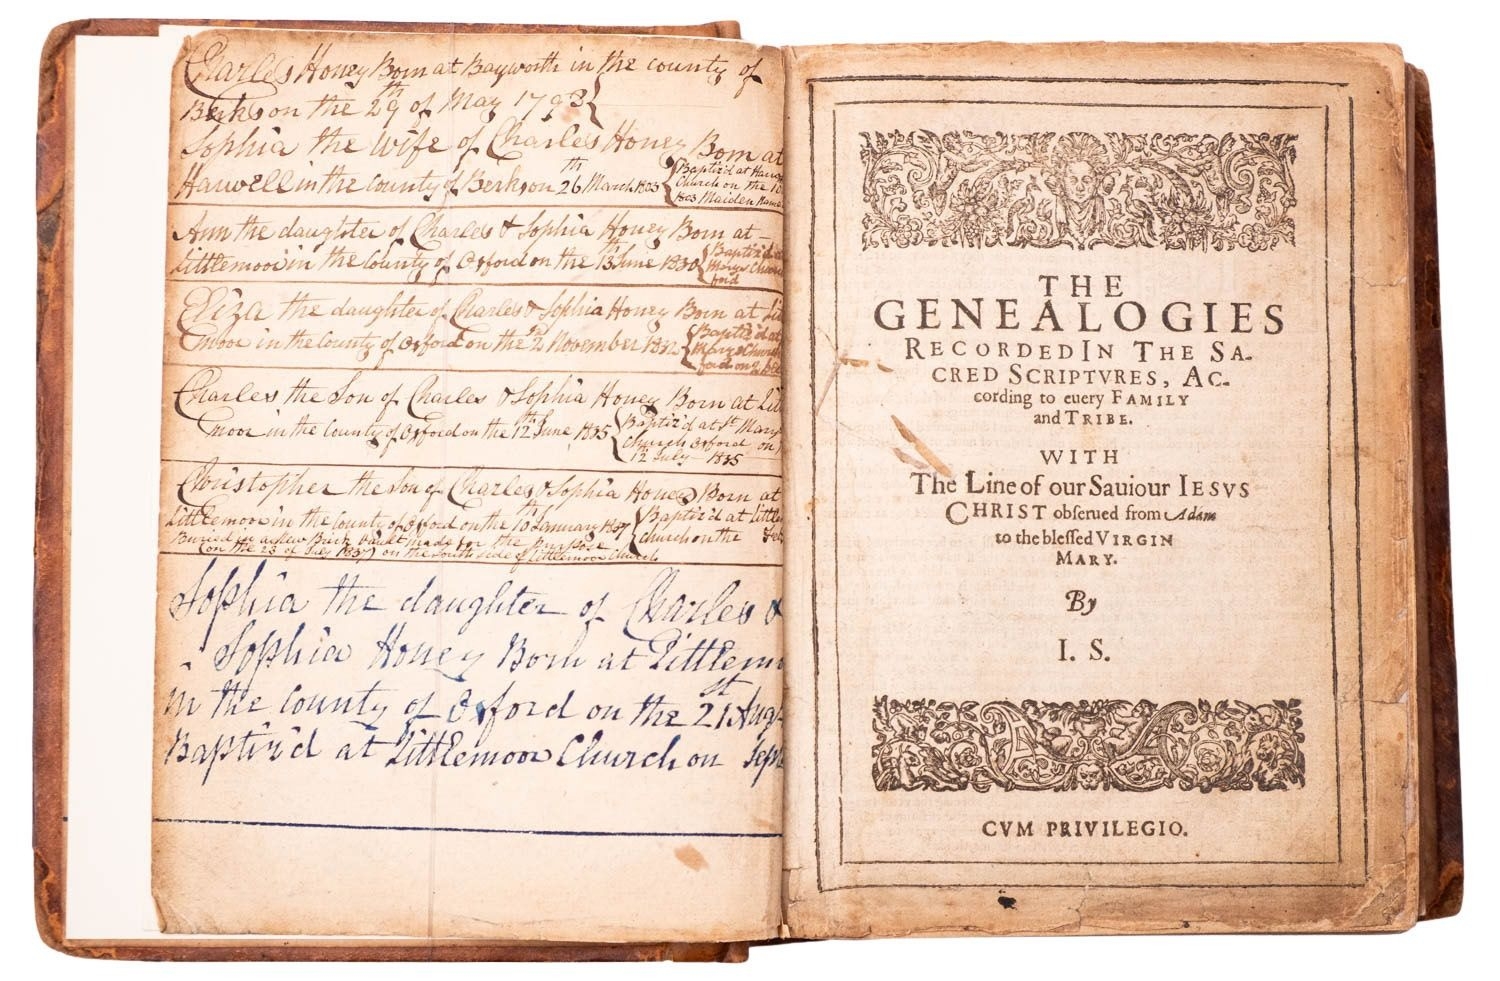 Charles Honey Born at Bayworth in the county of
Berks on the 29th of May 1793
Sophia the Wife of Charles Honey Born at
Harwell in the County of Berks on 26th March 1803
Baptiz'd at
Church on the
1803 Maiden Name
Ann the daughter of Charles & Sophia Honey Born at
Littlemoor in the County of Oxford on the 13th June 1830
Baptiz'd
Marys Church
ford
Eliza the daughter of Charles & Sophia Honey Born at Lit
moor in the County of Oxford on the 2nd November 1832
Baptiz'd at
Marys Church
ford on
Charles the Son of Charles & Sophia Honey Born at Litt
moor in the County of Oxford on the 12th June 1835
Baptiz'd at St Mary
Church Oxford on
12th July 1835
Christopher the Son of Charles & Sophia Honey Born at
Littlemoor in the County of Oxford on the 10th January 1837
Baptiz'd at Littlem
Church on the Feb
Buried in a New Brick Vault made for the purpose
(on the 23 of July 1837) on the South Side of Littlemoor Church
Sophia the daughter of Charles &
Sophia Honey Born at Littlemo
in the County of Oxford on the 21st Aug
Baptiz'd at Littlemoor Church on Sept
THE
GENEALOGIES
RECORDED IN THE SA-
CRED SCRIPTVRES, AC-
cording to euery FAMILY
and TRIBE.
WITH
The Line of our Sauiour IESVS
CHRIST obſerued from Adam
to the bleſſed VIRGIN
MARY.
By
I. S.
CVM PRIVILEGIO.